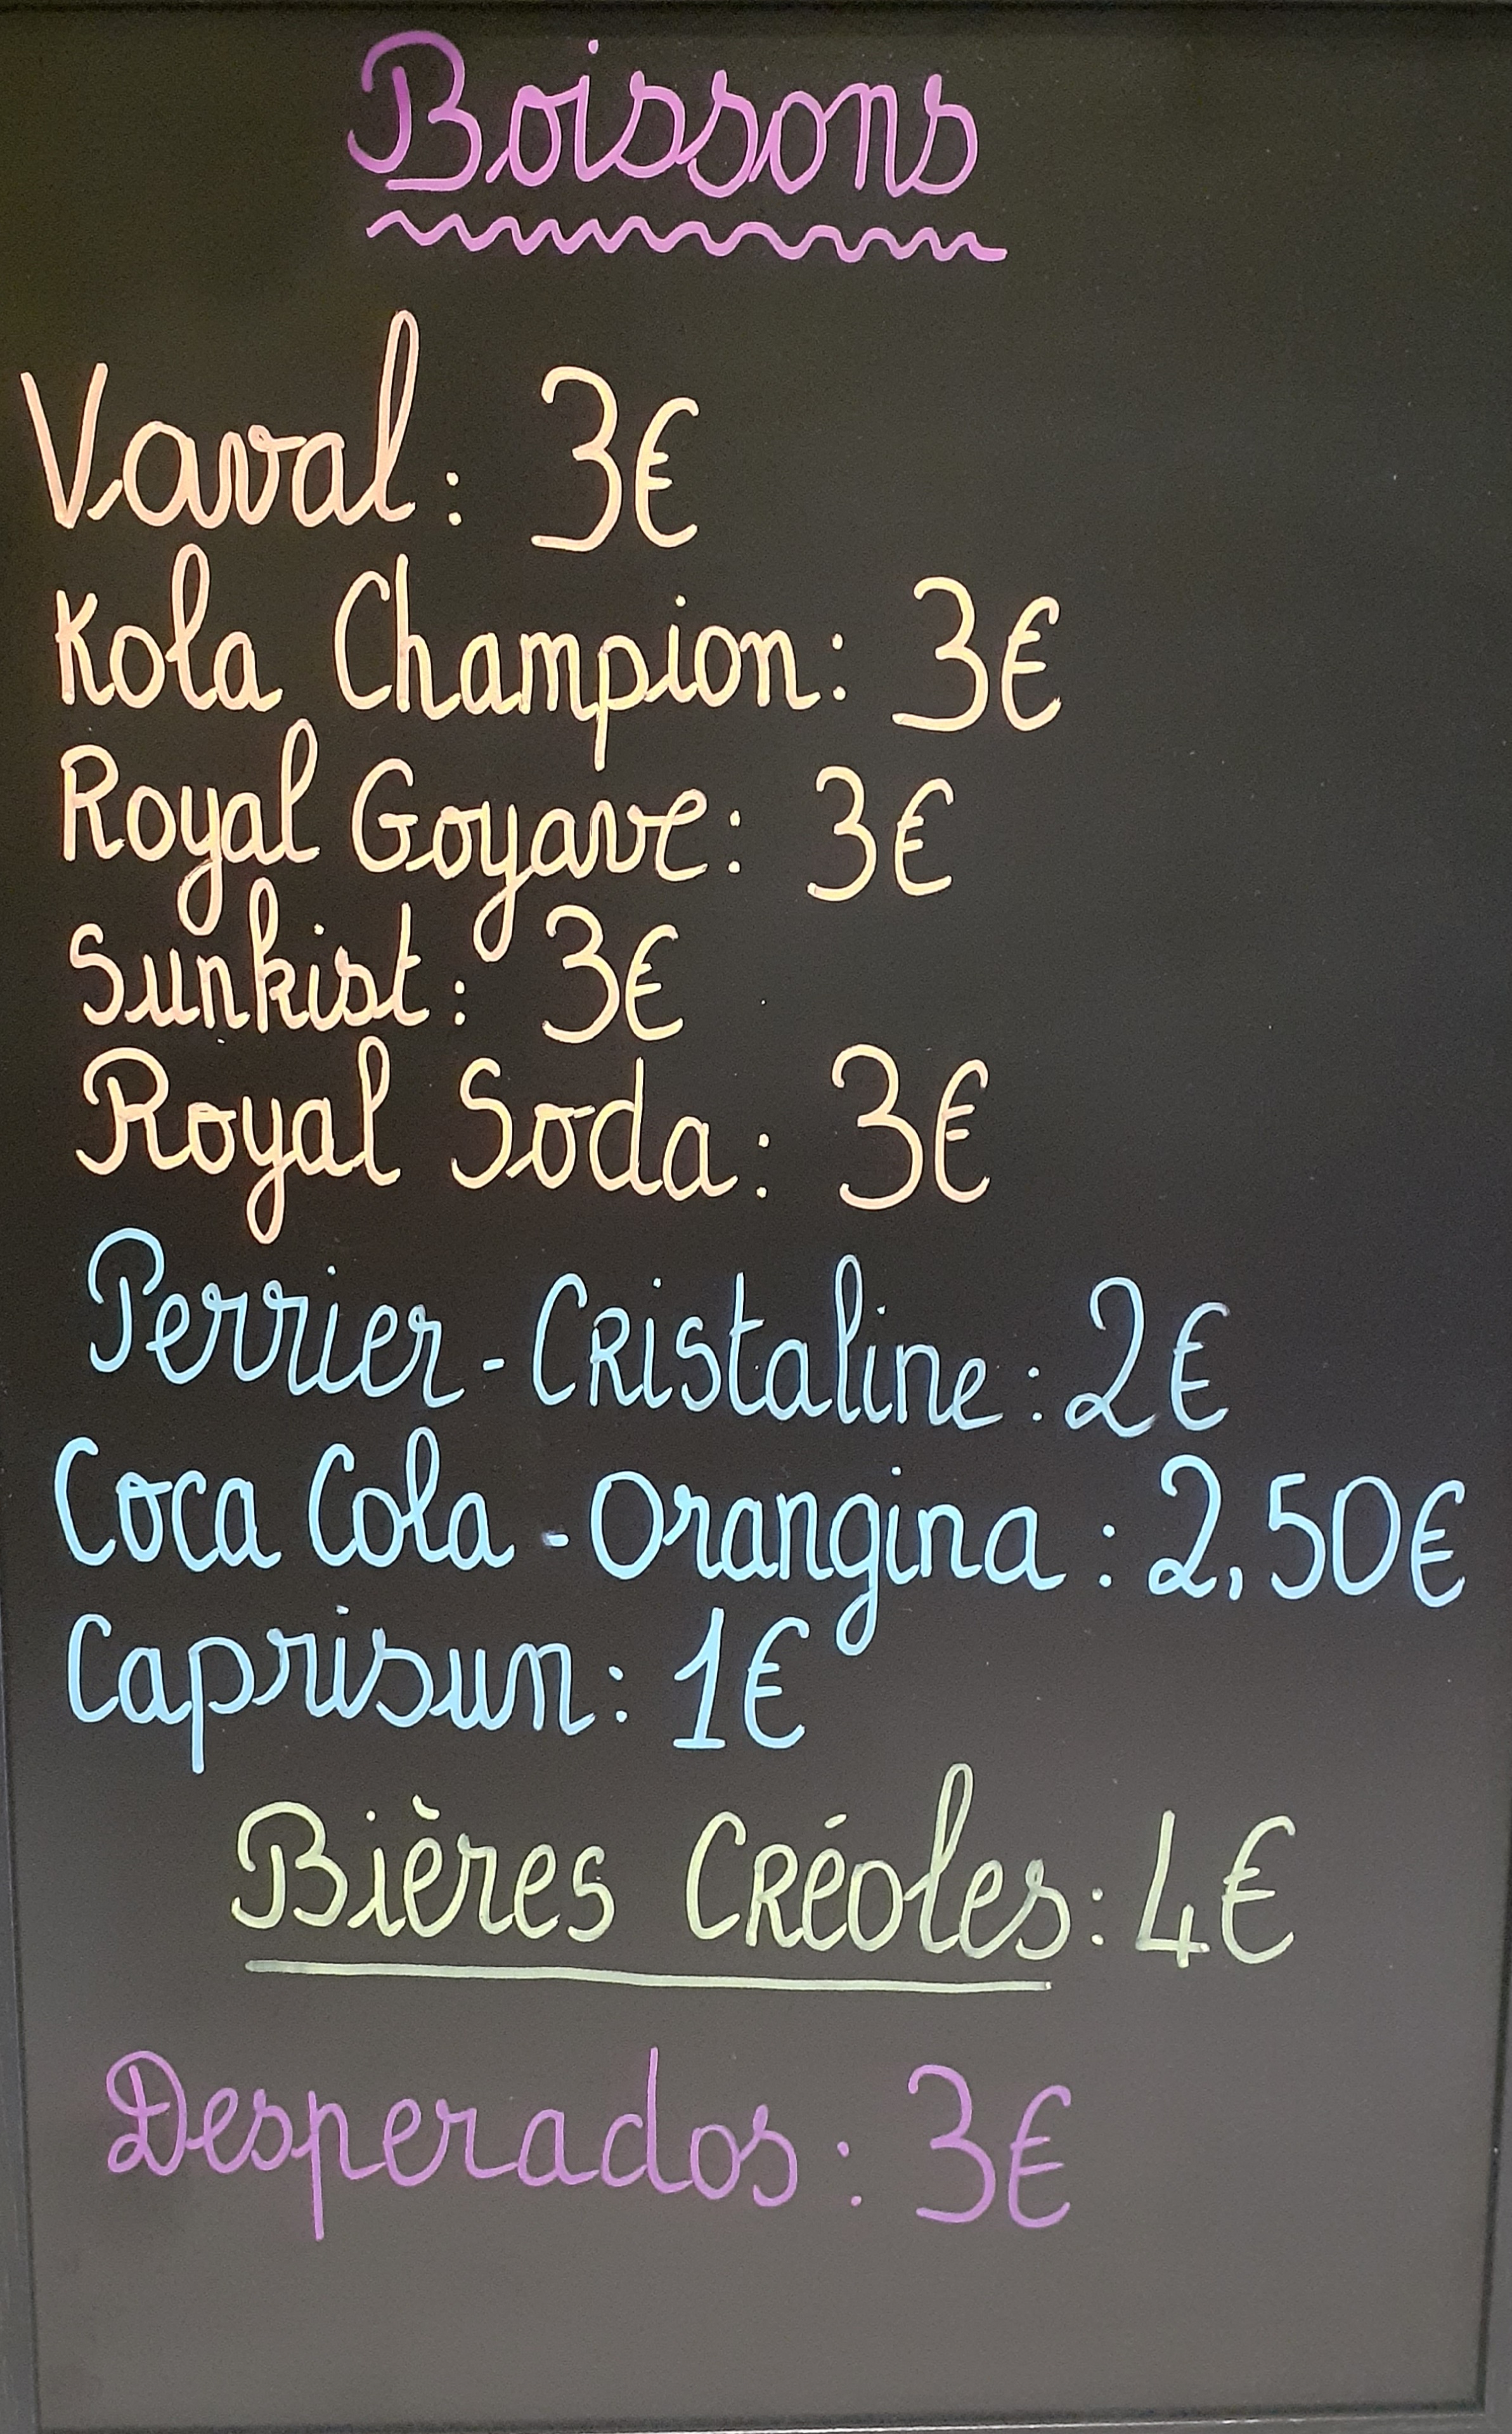 Boissons
Vaval : 3€
Kola Champion : 3€
Royal Goyave : 3€
Sunkist : 3€
Royal Soda : 3€
Perrier - CRistaline : 2€
Coca Cola - Orangina : 2,50€
Caprisun : 1€
Bières CRéoles : 4€
Desperados : 3€